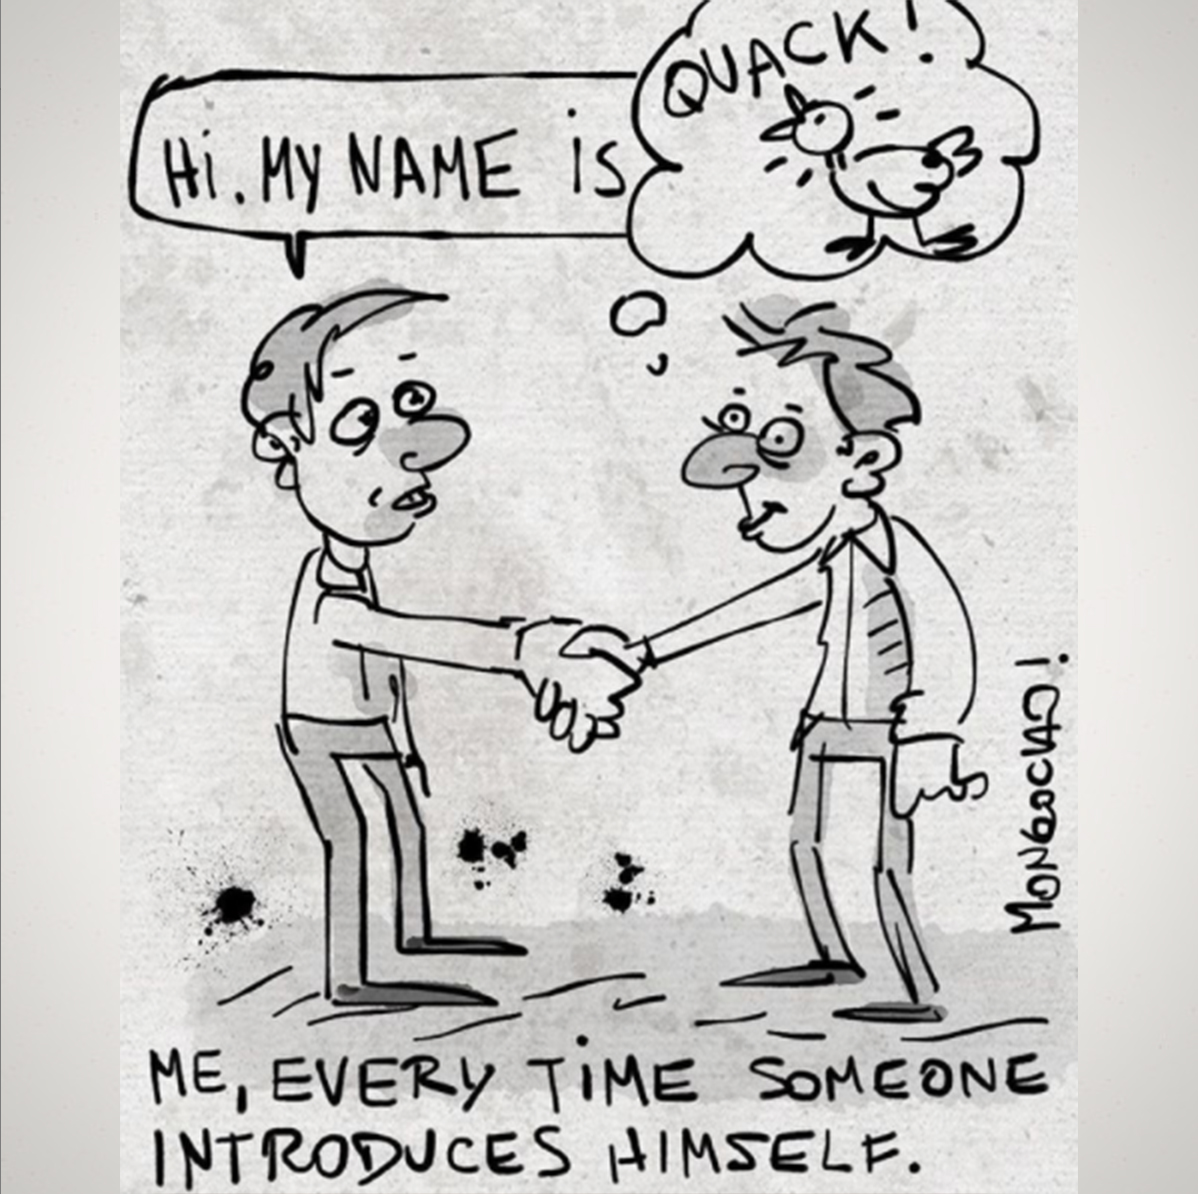 Hi. MY NAME iS
QUACK!
MONGOCIAO!
ME, EVERY TiME SOMEONE
INTRODUCES HIMSELF.